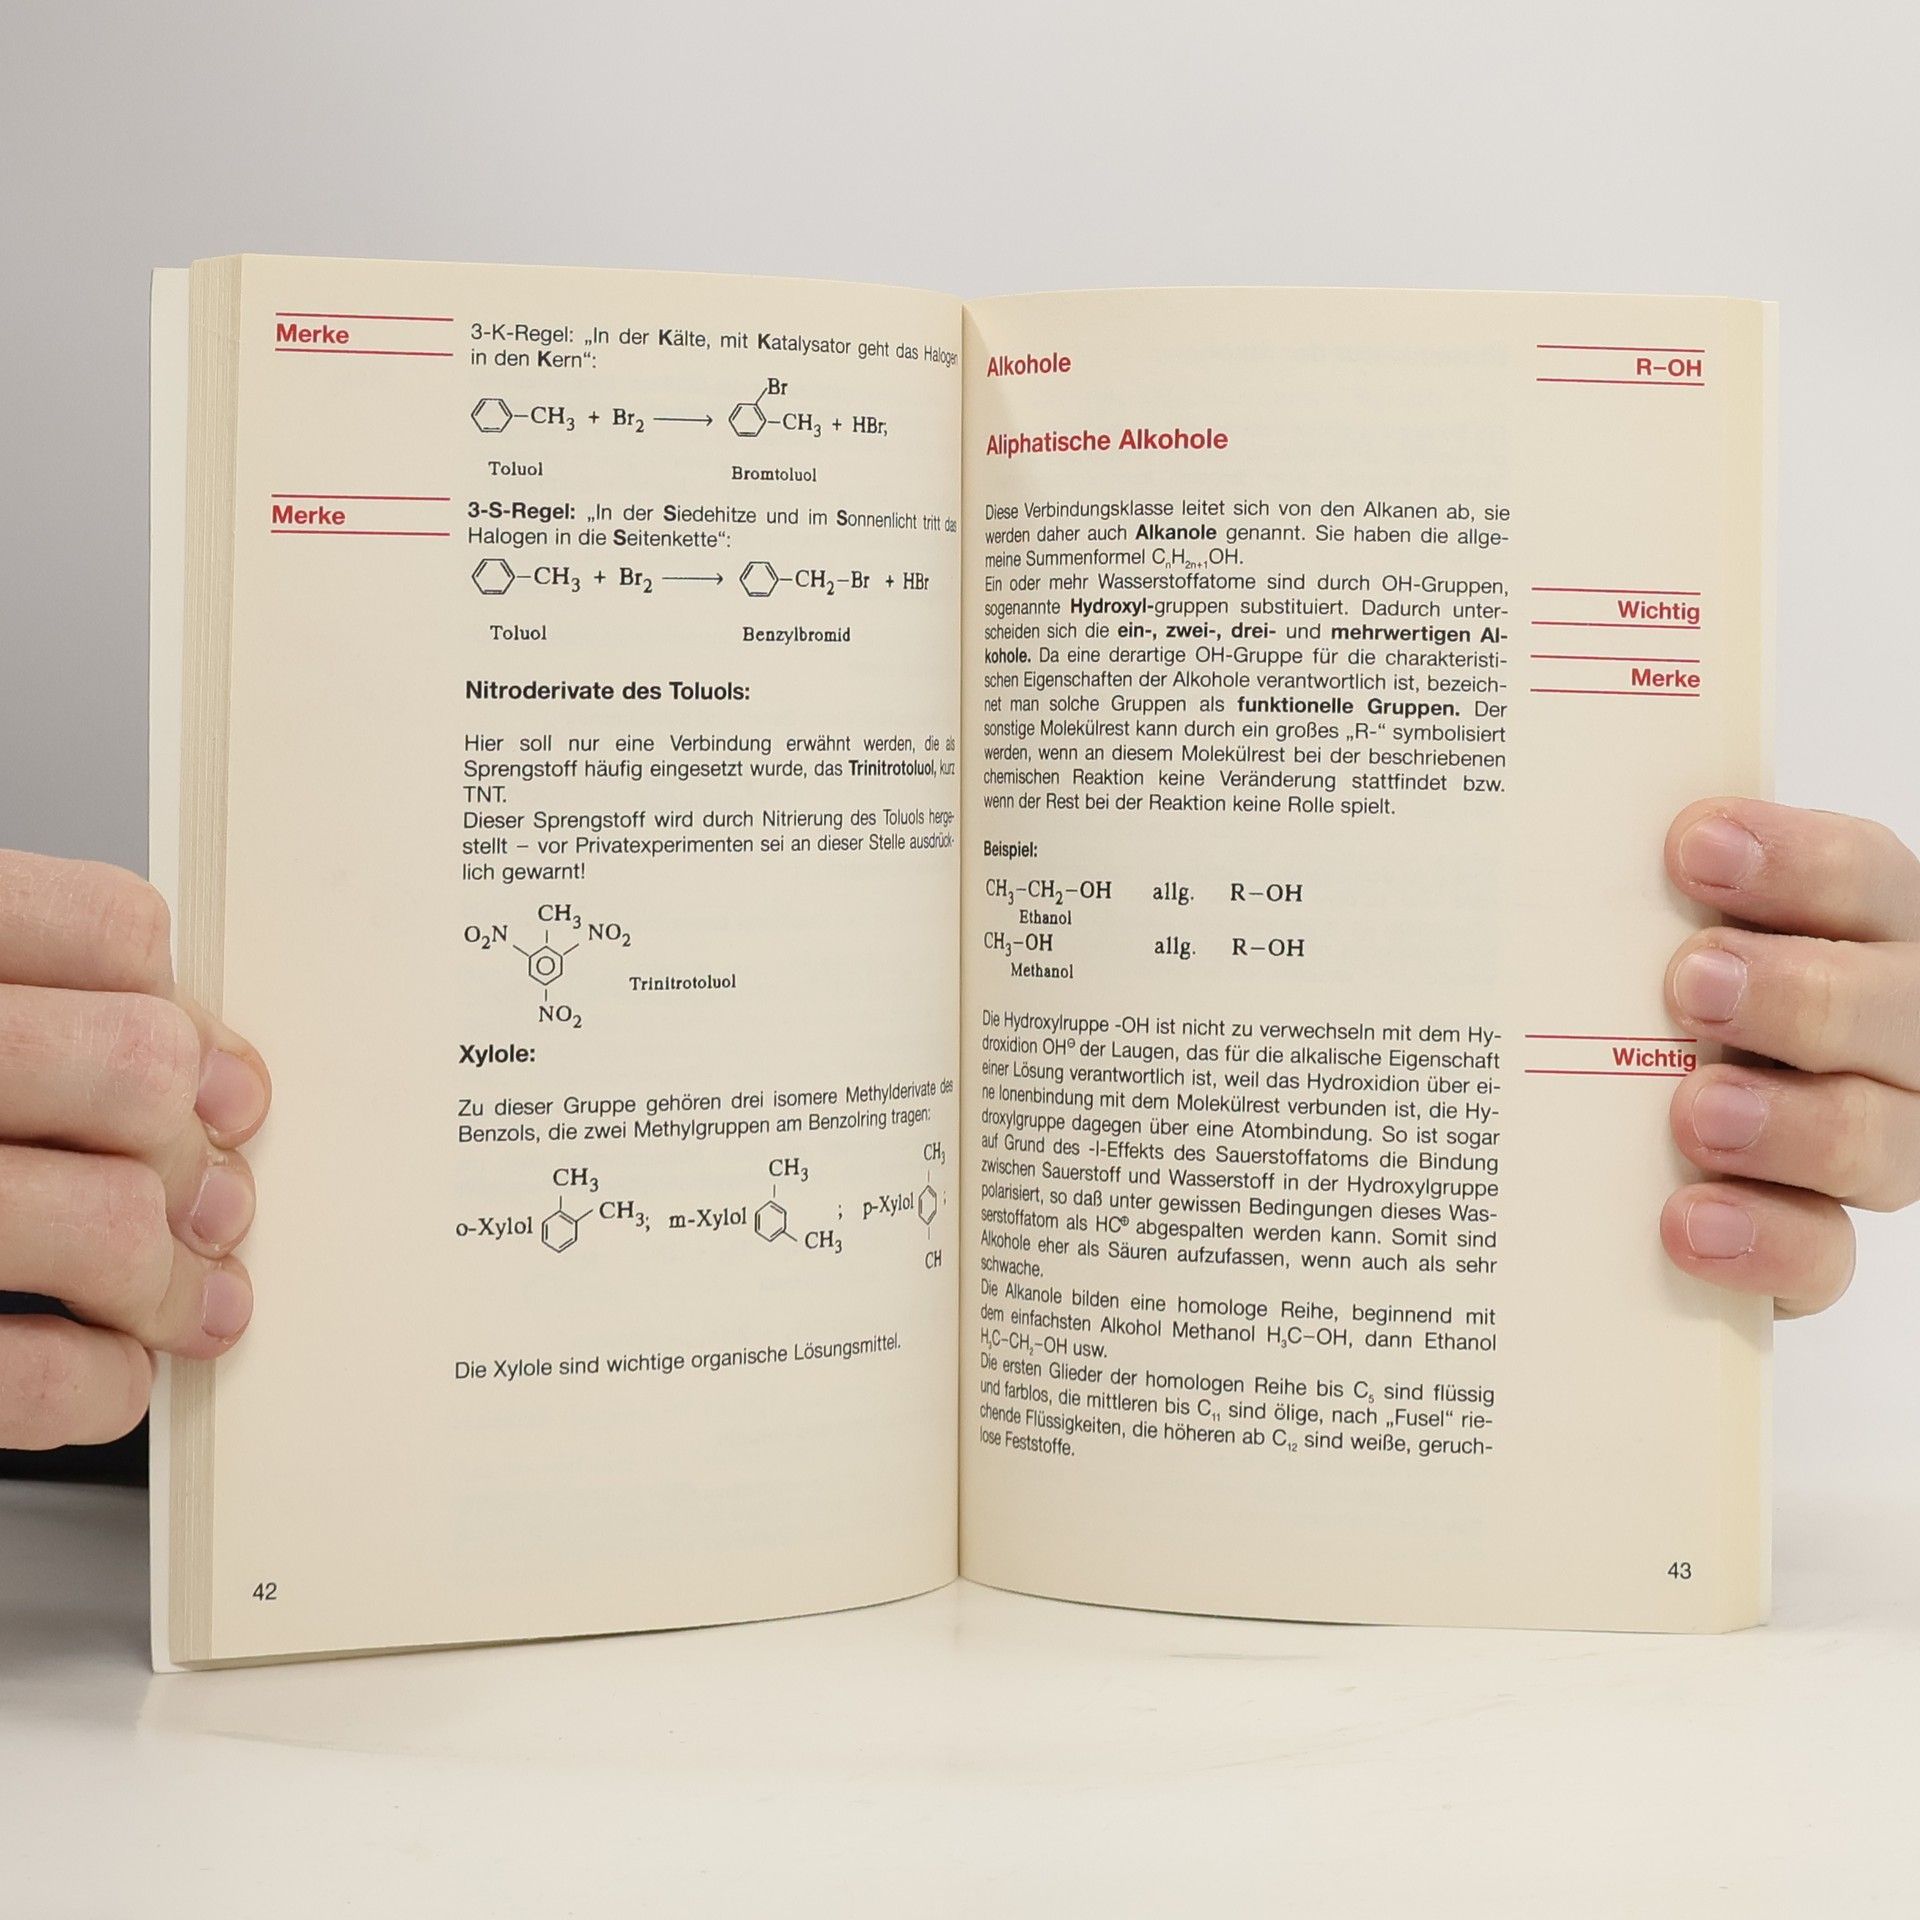 Merke
3-K-Regel: „In der Kälte, mit Katalysator geht das Halogen
in den Kern“:
Br
–CH₃ + Br₂ ⟶ –CH₃ + HBr;
Toluol Bromtoluol
Merke
3-S-Regel: „In der Siedehitze und im Sonnenlicht tritt das
Halogen in die Seitenkette“:
–CH₃ + Br₂ ⟶ –CH₂–Br + HBr
Toluol Benzylbromid
Nitroderivate des Toluols:
Hier soll nur eine Verbindung erwähnt werden, die als
Sprengstoff häufig eingesetzt wurde, das Trinitrotoluol, kurz
TNT.
Dieser Sprengstoff wird durch Nitrierung des Toluols herge-
stellt – vor Privatexperimenten sei an dieser Stelle ausdrück-
lich gewarnt!
CH₃
O₂N NO₂
Trinitrotoluol
NO₂
Xylole:
Zu dieser Gruppe gehören drei isomere Methylderivate des
Benzols, die zwei Methylgruppen am Benzolring tragen:
CH₃ CH₃ CH₃
o-Xylol CH₃; m-Xylol ; p-Xylol ;
CH₃ CH
Die Xylole sind wichtige organische Lösungsmittel.
42
Alkohole
R–OH
Aliphatische Alkohole
Diese Verbindungsklasse leitet sich von den Alkanen ab, sie
werden daher auch Alkanole genannt. Sie haben die allge-
meine Summenformel CₙH₂ₙ₊₁OH.
Ein oder mehr Wasserstoffatome sind durch OH-Gruppen,
sogenannte Hydroxyl-gruppen substituiert. Dadurch unter-
Wichtig
scheiden sich die ein-, zwei-, drei- und mehrwertigen Al-
kohole. Da eine derartige OH-Gruppe für die charakteristi-
schen Eigenschaften der Alkohole verantwortlich ist, bezeich-
Merke
net man solche Gruppen als funktionelle Gruppen. Der
sonstige Molekülrest kann durch ein großes „R-“ symbolisiert
werden, wenn an diesem Molekülrest bei der beschriebenen
chemischen Reaktion keine Veränderung stattfindet bzw.
wenn der Rest bei der Reaktion keine Rolle spielt.
Beispiel:
CH₃–CH₂–OH allg. R–OH
Ethanol
CH₃–OH allg. R–OH
Methanol
Die Hydroxylruppe -OH ist nicht zu verwechseln mit dem Hy-
droxidion OH⊖ der Laugen, das für die alkalische Eigenschaft
Wichtig
einer Lösung verantwortlich ist, weil das Hydroxidion über ei-
ne Ionenbindung mit dem Molekülrest verbunden ist, die Hy-
droxylgruppe dagegen über eine Atombindung. So ist sogar
auf Grund des -I-Effekts des Sauerstoffatoms die Bindung
zwischen Sauerstoff und Wasserstoff in der Hydroxylgruppe
polarisiert, so daß unter gewissen Bedingungen dieses Was-
serstoffatom als HC⊕ abgespalten werden kann. Somit sind
Alkohole eher als Säuren aufzufassen, wenn auch als sehr
schwache.
Die Alkanole bilden eine homologe Reihe, beginnend mit
dem einfachsten Alkohol Methanol H₃C–OH, dann Ethanol
H₃C–CH₂–OH usw.
Die ersten Glieder der homologen Reihe bis C₅ sind flüssig
und farblos, die mittleren bis C₁₁ sind ölige, nach „Fusel“ rie-
chende Flüssigkeiten, die höheren ab C₁₂ sind weiße, geruch-
lose Feststoffe.
43